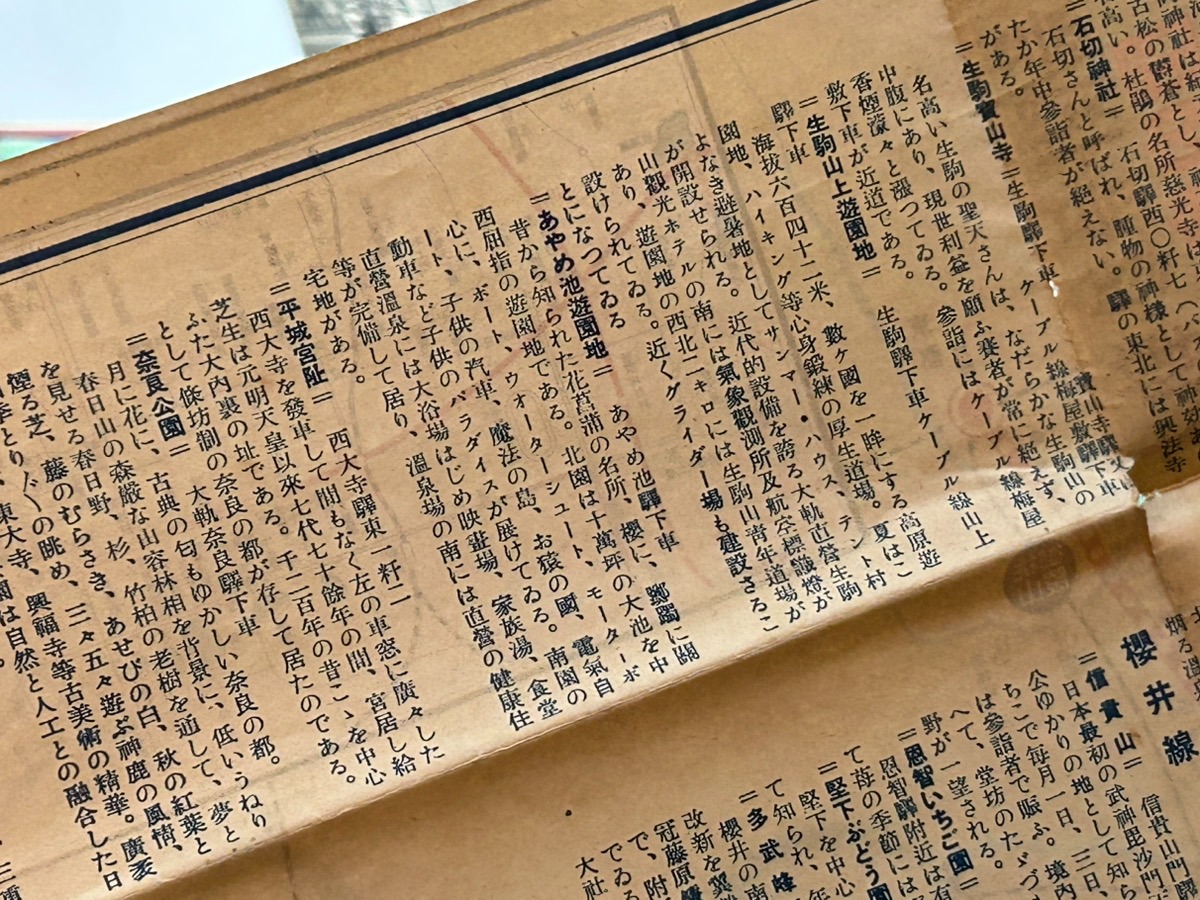 古松の欝蒼とし、
名高い。杜鵑の名所慈光寺は
＝石切神社＝　石切驛西〇粁七
石切さんと呼ばれ、腫物の神様として神效
たか年中參詣者が絶えない。驛の東北には興法寺
がある。
＝生駒寳山寺＝生駒驛下車　ケーブル線梅屋敷驛下車
名高い生駒の聖天さんは、なだらかな生駒山の
中腹にあり、現世利益を願ふ賽者が常に絶えず、
香煙濛々と漲つてゐる。參詣にはケーブル線梅屋
敷下車が近道である。
＝生駒山上遊園地＝　生駒驛下車ケーブル線山上
驛下車
海拔六百四十二米、數ヶ國を一眸にする高原遊
園地、ハイキング等心身鍛練の厚生道場。夏はこ
よなき避暑地としてサンマー・ハウス、テント村
が開設せられる。近代的設備を誇る大軌直營生駒
山觀光ホテルの南には氣象觀測所及航空標識燈が
あり、遊園地の西北二キロには生駒山靑年道場が
設けられてゐる。近くグライダー場も建設さるこ
とになつてゐる
＝あやめ池遊園地＝　あやめ池驛下車
昔から知られた花菖蒲の名所、櫻に、躑躅に關
西屈指の遊園地である。北園は十萬坪の大池を中
心に、ボート、ウォーターシュート、モーターボ
ート、子供の汽車、魔法の島、お猿の國、電氣自
動車など子供のパラダイスが展けてゐる。南園の
直營溫泉には大浴場はじめ映畫場、家族湯、食堂
等が完備して居り、溫泉場の南には直營の健康住
宅地がある。
＝平城宮趾＝　西大寺驛東一粁二
西大寺を發車して間もなく左の車窓に廣々した
芝生は元明天皇以來七代七十餘年の間、宮居し給
ふた大內裏の址である。千二百年の昔こゝを中心
として條坊制の奈良の都が存して居たのである。
＝奈良公園＝　大軌奈良驛下車
月に花に、古典の匂もゆかしい奈良の都。
春日山の森嚴な山容林相を背景に、低いうねり
を見せる春日野、杉、竹柏の老樹を通して、夢と
煙る芝、藤のむらさき、あせびの白、秋の紅葉と
四季とり〲の眺め、三々五々遊ぶ神鹿の風情、
東大寺、興福寺等古美術の精華。廣袤
園は自然と人工との融合した日
櫻井線
＝信貴山＝　信貴山門驛
日本最初の武神毘沙門天
公ゆかりの地として知ら
ちこで每月一日、三日、
は參詣者で賑ふ。境內
へて、堂坊のたゞづ
野が一望される。
＝恩智いちご園＝
恩智驛附近は有
て苺の季節には
＝堅下ぶどう園
堅下を中心
て知られ、
＝多武峰
櫻井の南
改新を
冠藤原
で、附
でゐる
大社